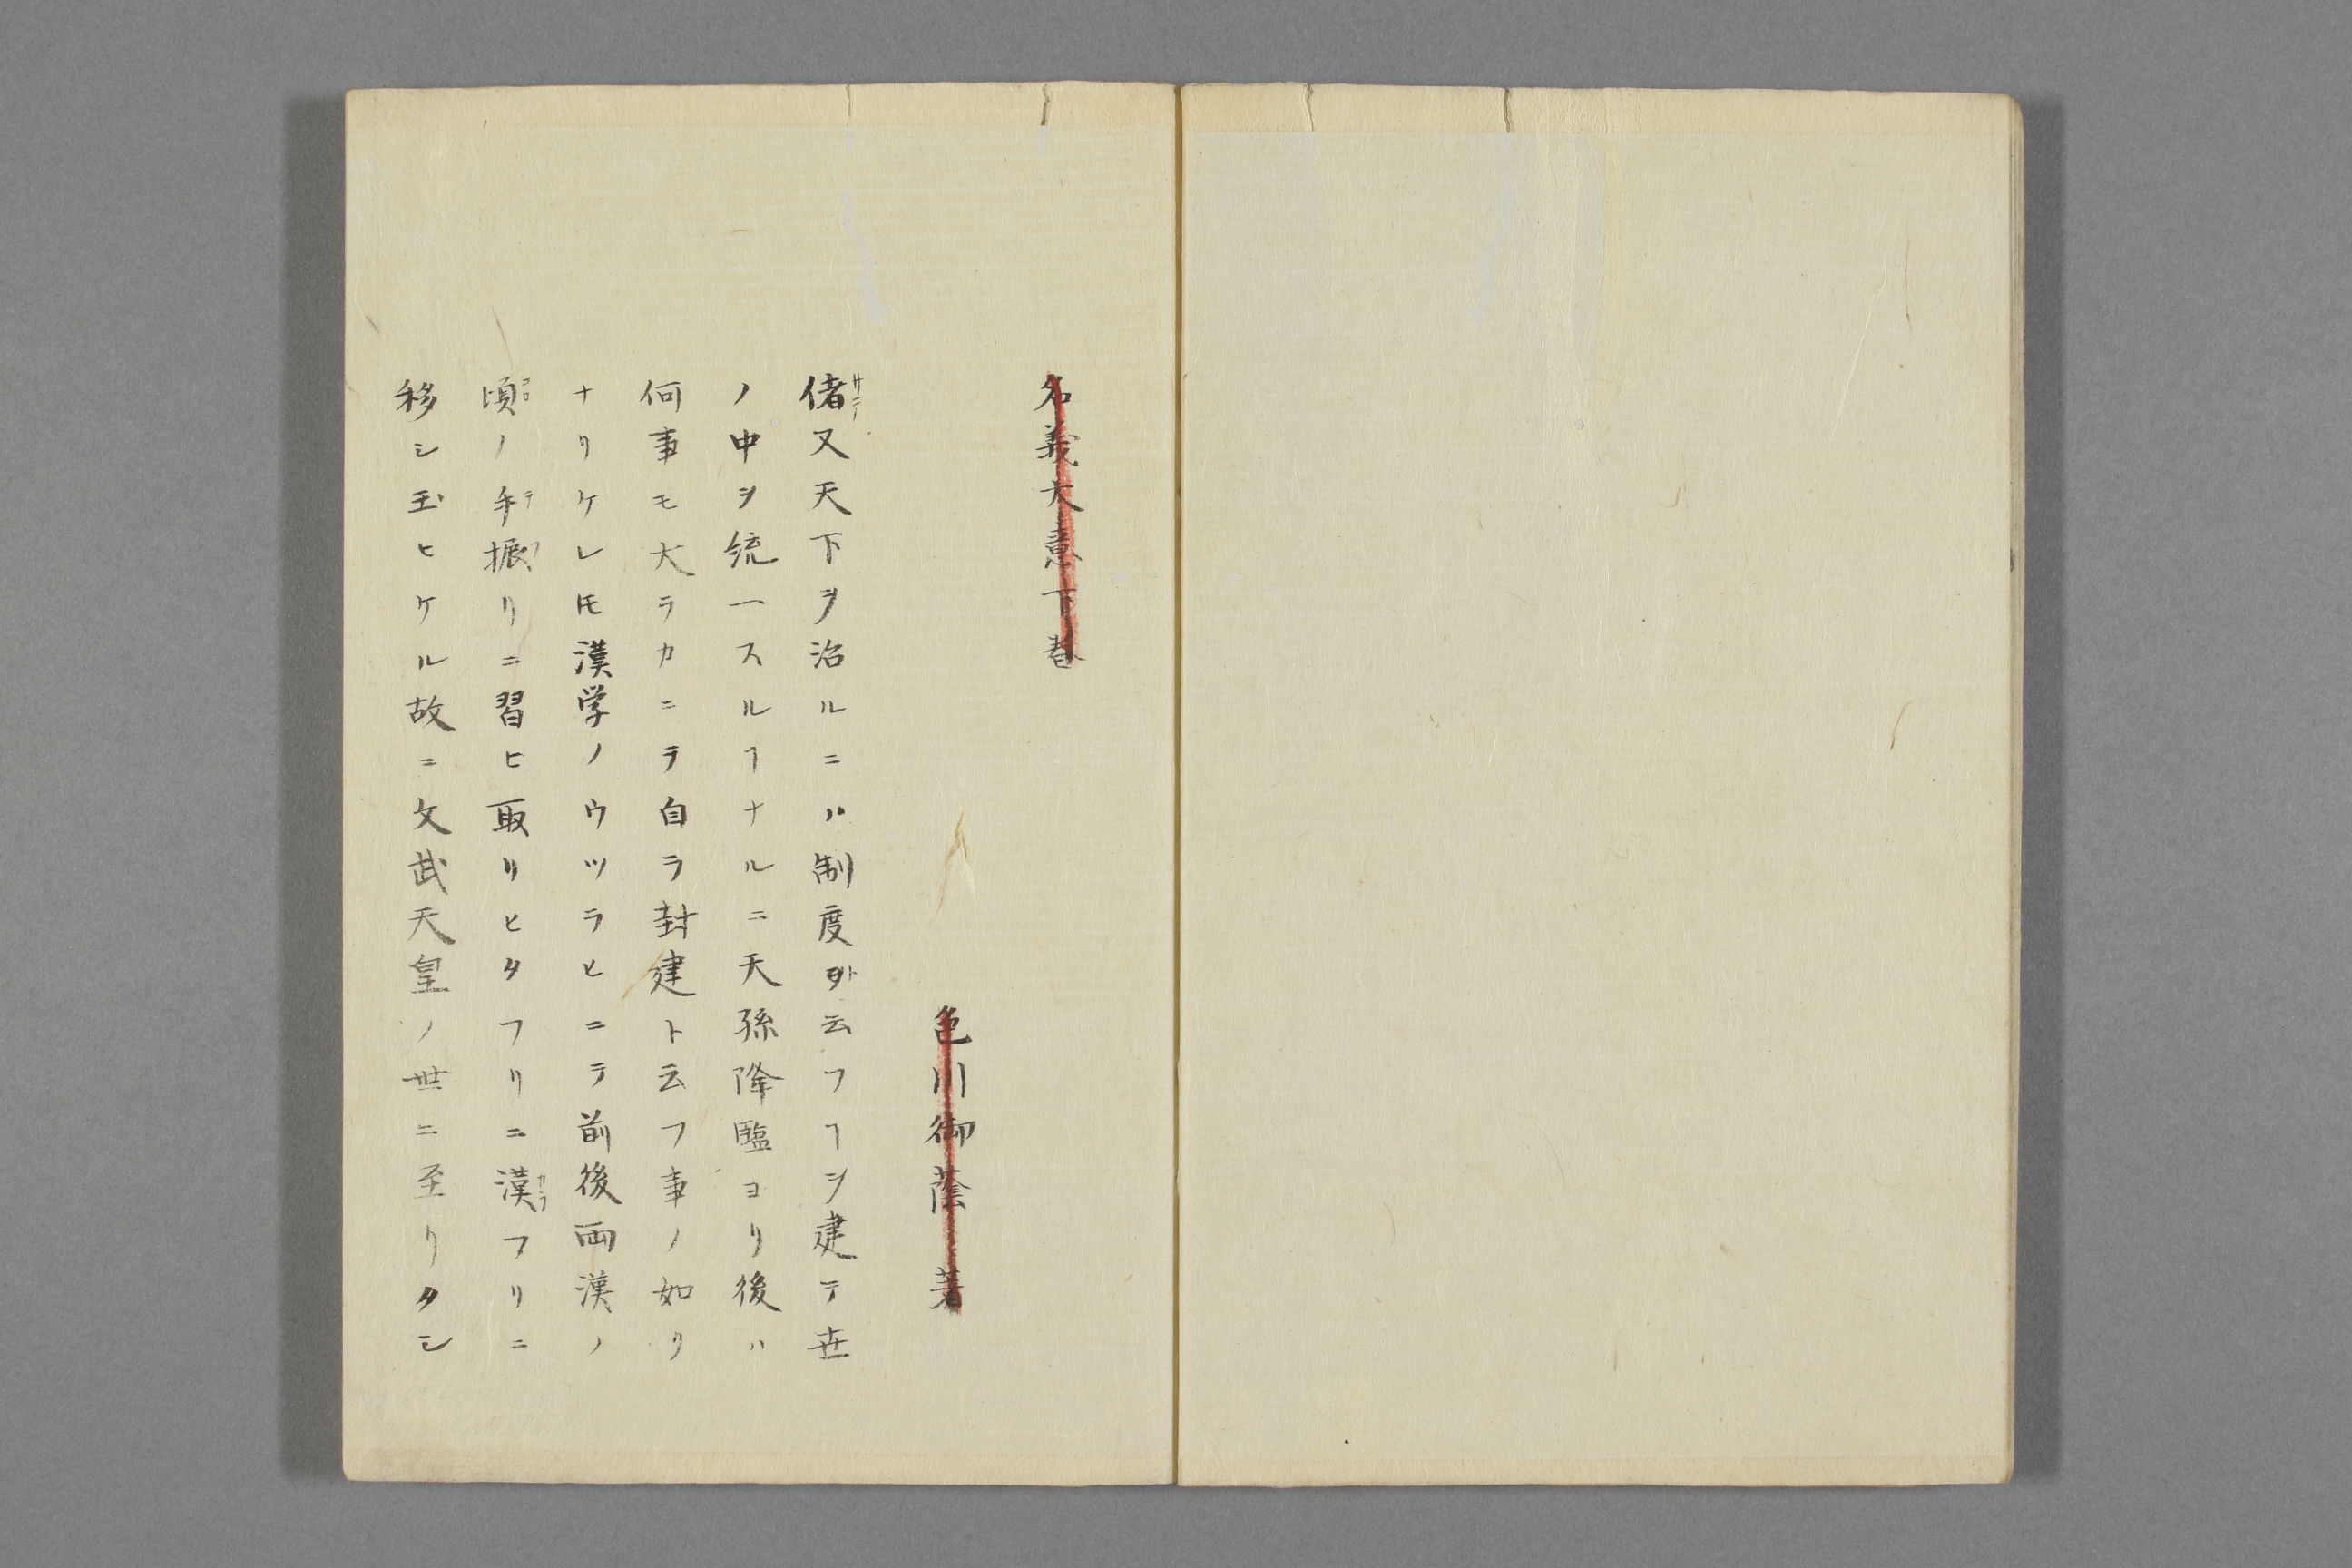 名義大意下巻
色川御蔭著
偖又天下ヲ治ルニハ制度ト云フヿヲ建テ世
ノ中ヲ統一スルヿナルニ天孫降臨ヨリ後ハ
何事モ大ラカニテ自ラ封建ト云フ事ノ如ク
ナリケレ𪜈漢学ノウツラヒニテ前後両漢ノ
頃ノ手振リニ習ヒ取リヒタフリニ漢フリニ
移シ玉ヒケル故ニ文武天皇ノ世ニ至リタシ